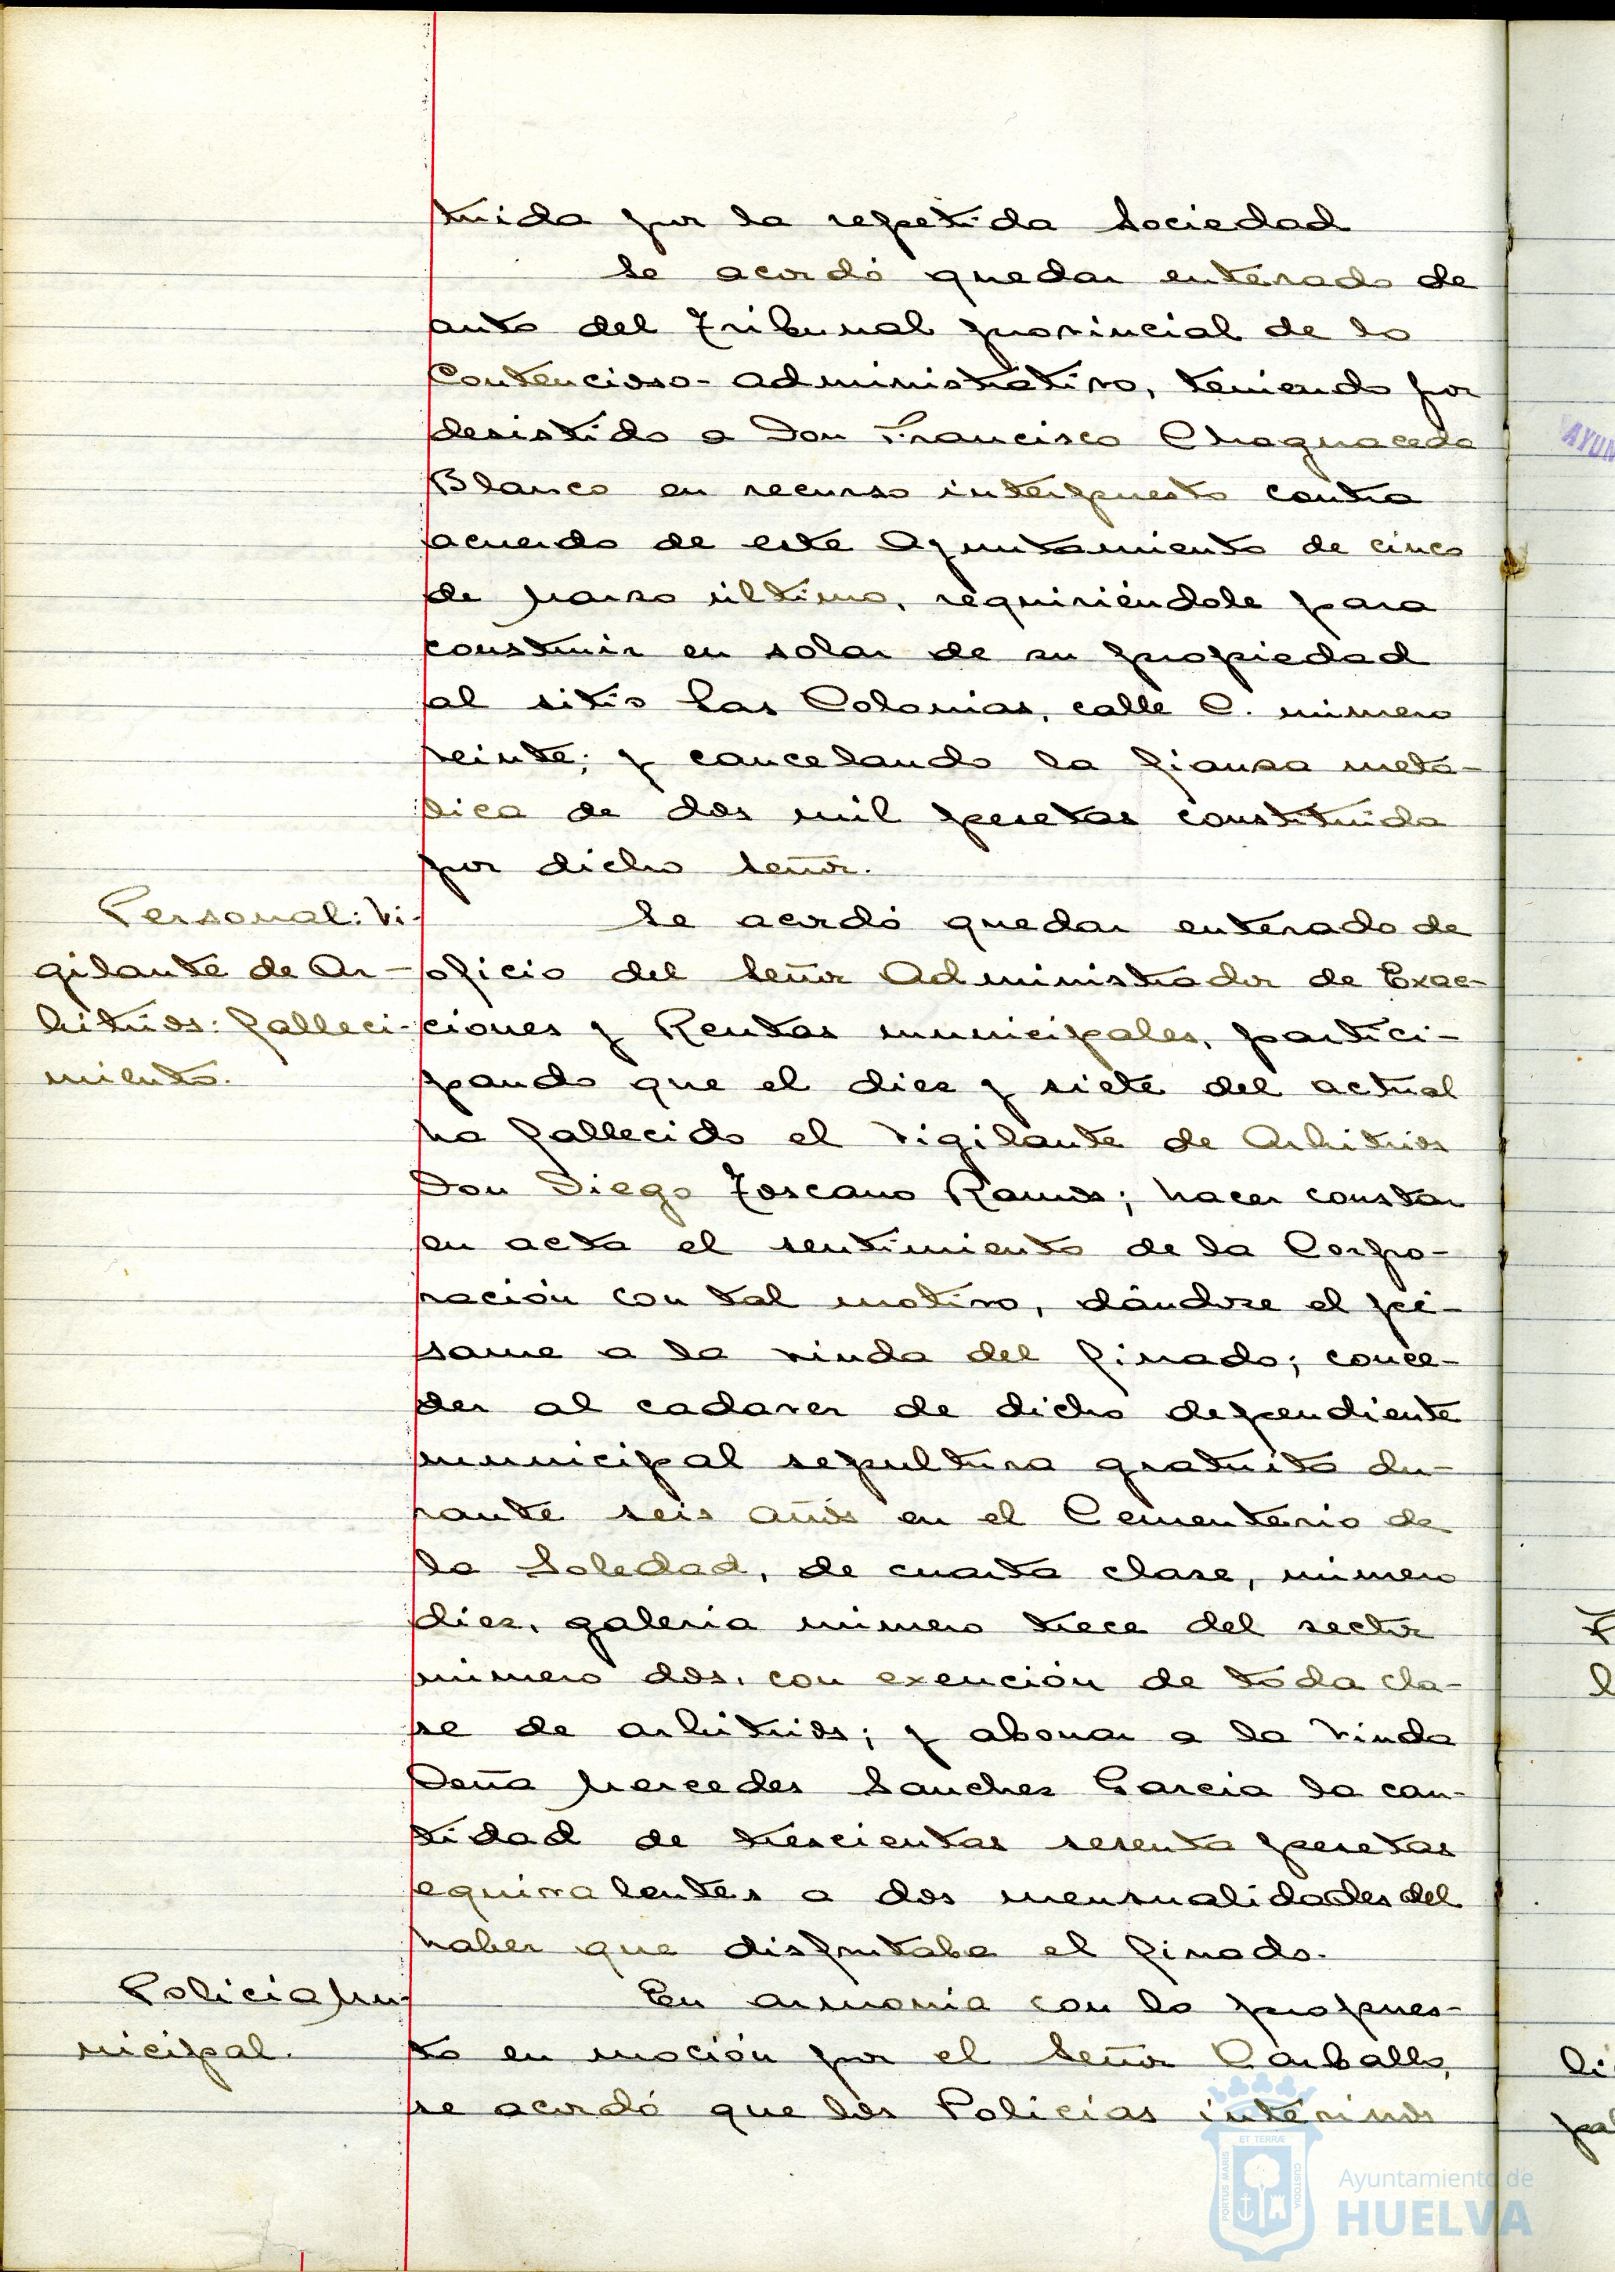 tuida por la repetida Sociedad
Se acordó quedar enterado de
auto del Tribunal provincial de lo
Contencioso-administrativo, teniendo por
desistido a Don Francisco Chaguaceda
Blanco en recurso interpuesto contra
acuerdo de este Ayuntamiento de cinco
de Marzo último, requiriéndole para
construir en solar de su propiedad
al sitio Las Colonias, calle C. número
veinte; y cancelando la fianza metá-
lica de dos mil pesetas constituida
por dicho Señor.
Personal: Vi-
gilante de Ar-
bitrios: falleci-
miento.
Se acordó quedar enterado de
oficio del Señor Administrador de Exac-
ciones y Rentas municipales, partici-
pando que el diez y siete del actual
ha fallecido el Vigilante de Arbitrios
Don Diego Toscano Ramos; hacer constar
en acta el sentimiento de la Corpo-
ración con tal motivo, dándose el pé-
same a la viuda del finado; conce-
der al cadaver de dicho dependiente
municipal sepultura gratuita du-
rante seis años en el Cementerio de
la Soledad, de cuarta clase, número
diez, galeria número trece del sector
número dos, con exención de toda cla-
se de arbitrios; y abonar a la Viuda
Doña Mercedes Sanchez Garcia la can-
tidad de trescientas sesenta pesetas
equivalentes a dos mensualidades del
haber que disfrutaba el finado.
Policia Mu-
nicipal.
En armonia con lo propues-
to en moción por el Señor Carballo,
se acordó que los Policías interinos
AYUN
li
pal
ET TERRÆ
PORTUS MARIS
CUSTODIA
Ayuntamiento de
HUELVA